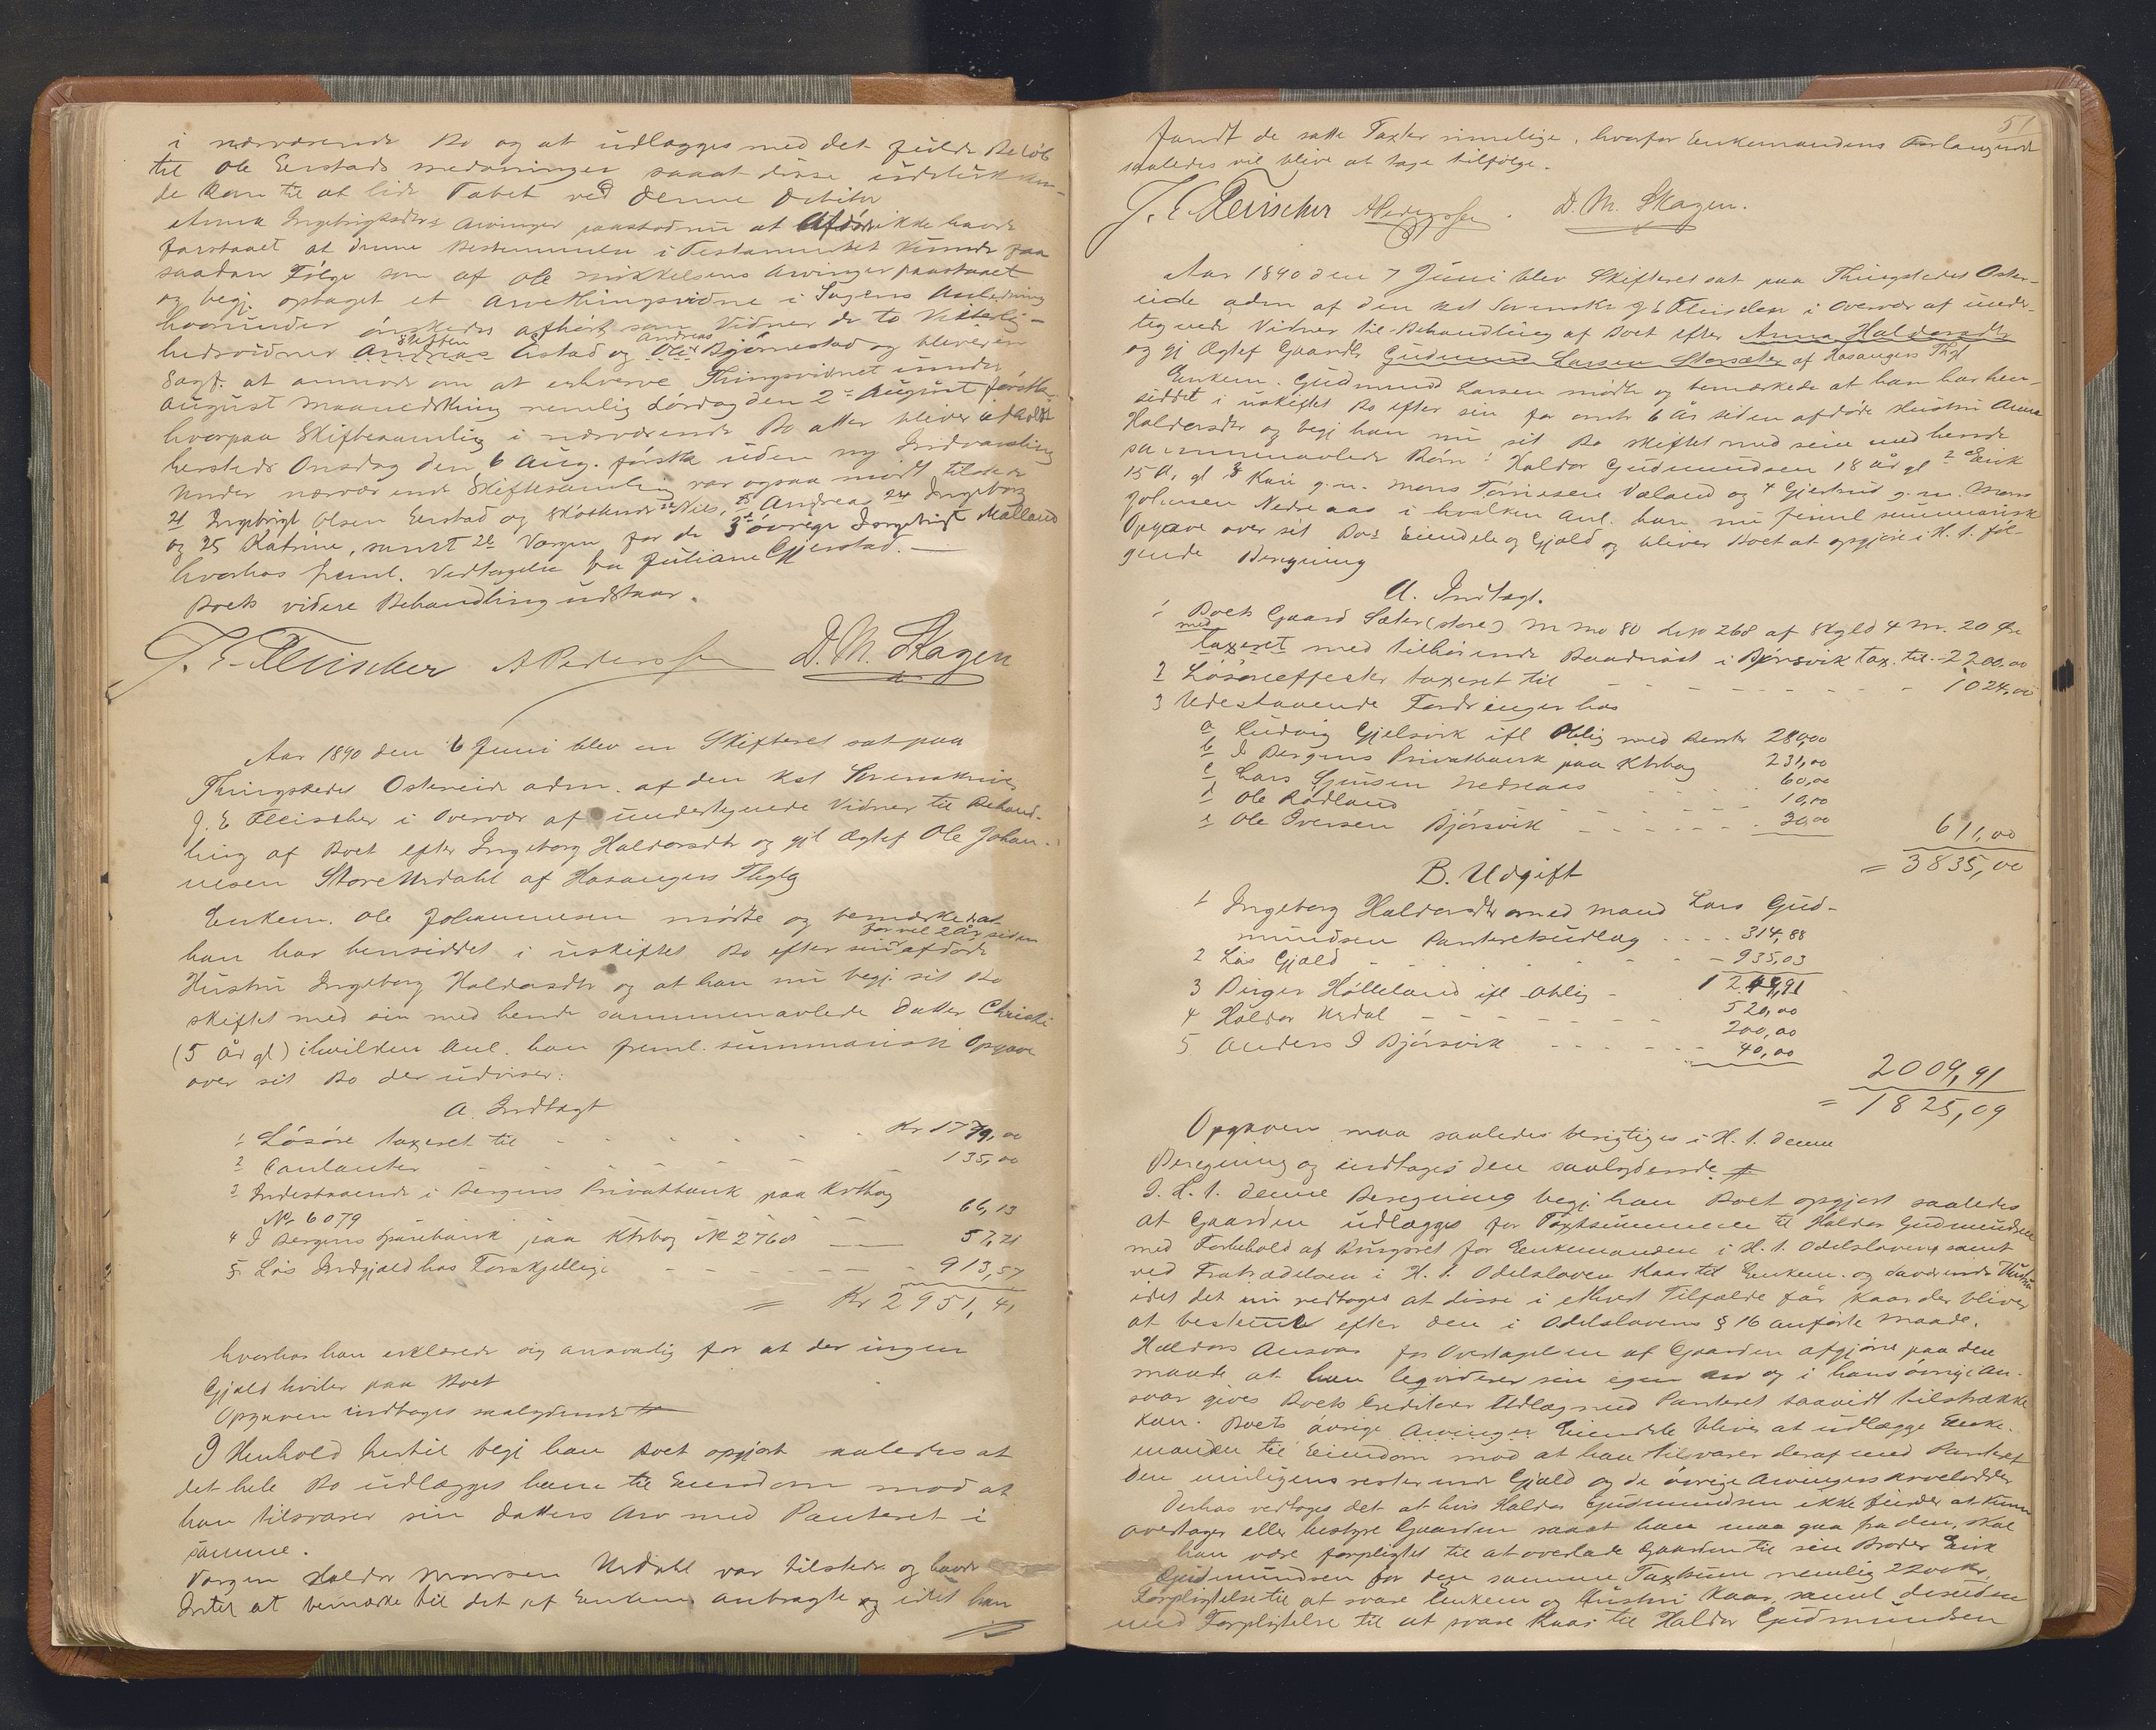 i nærværende Bo og at udlægges med det fulde Beløb
til Ole Eerstads medarvinger saaat disse udelukken-
de kom til at lide Tabet ved denne Debitor
Anna Ingebrigtsdtrs Arvinger paastod nu at Afdøde ikke havde
forstaaet at denne Bestemmelse i Testamentet kunde faa
saadan Følge som af Ole Mikkelsens Arvinger paastaaet
og begj. optaget et Arvethingsvidne i Sagens Anledning
hvorunder ønskedes afhørt som Vidner de to Vitterlig-
hedsvidner Steffen Aastad og Andreas Bjørnestad og bliver en
Sagf. at anmode om at erhverve Thingsvidnet under
August Maanedsthing nemlig Lørdag den 2den August førstk.
hvorpaa Skiftesamling i nærværende Bo atter bliver afholdt
hersteds Onsdag den 6 Aug. førstk uden ny Indvarsling
Under nærværende Skiftesamling var ogsaa mødt tilstede
21 Ingebrigt Olsen Eerstad og Søskende 22 Nils, 23 Andreas 24 Ingeborg
og 25 Katrine, samt 2e Værgen for de 3de øvrige Ingebrigt Mølland
hvorhos freml. Vedtagelse fra Juliane Gjerstad.
Boets videre Behandling udstaar.
J. E. Fleischer A Pederssen D. M. Skagen
Aar 1890 den 6 Juni blev en Skifteret sat paa
Thingstedet Ostereide adm. af den kst Sorenskriver
J. E Fleischer i Overvær af undertegnede Vidner til Behand-
ling af Boet efter Ingeborg Haldorsdtr og gjl Ægtef Ole Johan-
nesen Store Urdahl af Hosangers Thglg
Enkem. Ole Johannesen mødte og bemærkede at
han har hensiddet i uskiftet Bo efter sin for vel 2 År siden afdøde
Hustru Ingeborg Haldorsdtr og at han nu begj. sit Bo
skiftet med sin med hende sammenavlede Datter Christi
(5 År gl) i hvilken Anl. han freml. summarisk Opgave
over sit Bo der udviser:
A. Indtægt
1 Løsøre taxeret til Kr 1779,00
2 Contanter 135,00
3 Indestaaende i Bergens Privatbank paa Ktrbog
No. 6079 66,13
4 I Bergens Sparebank paa Ktrbog No 2768 57,71
5. Løs Indgjæld hos Forskjellige 913,57
= Kr 2951,41
hvorhos han erklærede sig ansvarlig for at der ingen
Gjæld hviler paa Boet
Opgaven indtages saalydende
I Henhold hertil begj han Boet opgjort saaledes at
det hele Bo udlægges ham til Eiendom mod at
han tilsvarer sin Datters Arv med Panteret i
samme.
Værgen Haldor Monsen Urdahl var tilstede og havde
Intet at bemærke til det af Enkem. Antragte og idet han
51
fandt de satte Taxter rimelige, hvorfor Enkemandens Forlangende
saaledes vil blive at tage tilfølge.
J. E Fleischer A Pederssen. D. M. Skagen.
Aar 1890 den 7 Juni blev Skifteret sat paa Thingstedet Oster-
eide adm af den kst Sorenskr J E Fleischer i Overvær af under-
tegnede Vidner til Behandling af Boet efter Anna Haldorsdtr
og gj Ægtef Gaardbr Gudmund Larsen Storsæter af Hosangers Thgl
Enkem. Gudmund Larsen mødte og bemærkede at han har hen-
siddet i uskiftet Bo efter sin for omtr 6 År siden afdøde Hustru Anna
Haldorsdtr og begj han nu sit Bo skiftet med sine med hende
sammenavlede Børn: Haldor Gudmundsen 18 år gl 2 Eirik
15 A, gl 3 Kari g. m. Mons Tørrisen Væland og 4 Gjertrud g. m. Mons
Johnsen Nedreaas i hvilken Anl. han nu freml summarisk
Opgave over sit Bos Eiendele og Gjæld og bliver Boet at opgjøre i H. t. føl-
gende Beregning
A. Indtægt.
1 Boets Gaard Sæter (store) M no 80 Lbno 268 af Skyld 4 M. 20 Øre
med
taxeret med tilhørende Baadnøst i Bjørsvik tax. til 2200,00
2 Løsøreeffecter taxeret til 1024,00
3 Udestaaende Fordringer hos
a Ludvig Gjelsvik ifl Oblig med Renter 280,00
b I Bergens Privatbank paa Ktrbog 231,00
c Lars Sjursen Nedreaas 60,00
d Ole Rødland 10,00
e Ole Iversen Bjørsvik 30,00
611,00
= 3835,00
B. Udgift
1 Ingeborg Haldorsdtr med Mand Lars Gud-
mundsen Panteretsudlæg 314,88
2 Løs Gjæld 935,03
1249,91
3 Birger Hølleland ifl Oblig 520,00
4 Haldor Urdal 200,00
5 Anders I Bjørsvik 40,00
2009,91
= 1825,09
Opgaven maa saaledes berigtiges i H. t. denne
Beregning og indtages den saalydende
I. H. t. denne Beregning begj han Boet opgjort saaledes
at Gaarden udlægges for Taxtsummen til Haldor Gudmundsen
med Forbehold af Brugsret for Enkemanden i H. t. Odelsloven samt
ved Fratrædelsen i H. t. Odelsloven Kaar til Enkem. og daværende Hustru
idet det nu vedtages at disse i ethvert Tilfælde får Kaar der bliver
at bestemme efter den i Odelslovens § 16 anførte Maade.
Haldors Ansvar for Overtagelsen af Gaarden afgjøre paa den
Maade at han liqviderer sin egen Arv og i hans øvrige An-
svar gives Boets Creditorer Udlæg med Panteret saavidt tilstrække
kan. Boets øvrige Eiendele bliver at udlægge Enke-
manden til Eiendom mod at han tilsvarer deraf med Panteret
den muligens resterende Gjæld og de øvrige Arvingers Arvelodder
Derhos vedtoges det at hvis Haldor Gudmundsen ikke finder at kunne
overtage eller bestyre Gaarden saaat han maa gaa fra den, skal
han være forpligtet til at overlade Gaarden til sin Broder Eirik
Gudmundsen for den samme Taxtsum nemlig 2200 Kr,
Forpligtelse til at svare Enkem og Hustru Kaar, samt desuden
med Forpligtelse til at svare Kaar til Haldor Gudmundsen